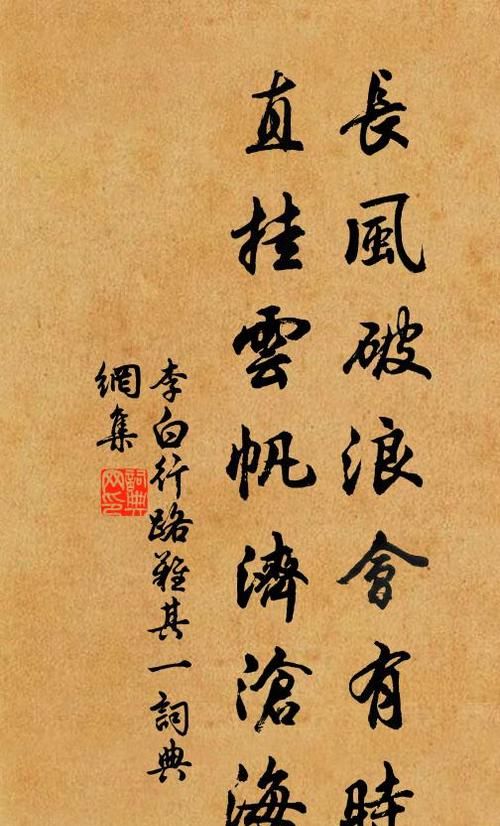 長風破浪會有時
直挂雲帆濟滄海
李白行路難其一詞典
網集
詞典
网印